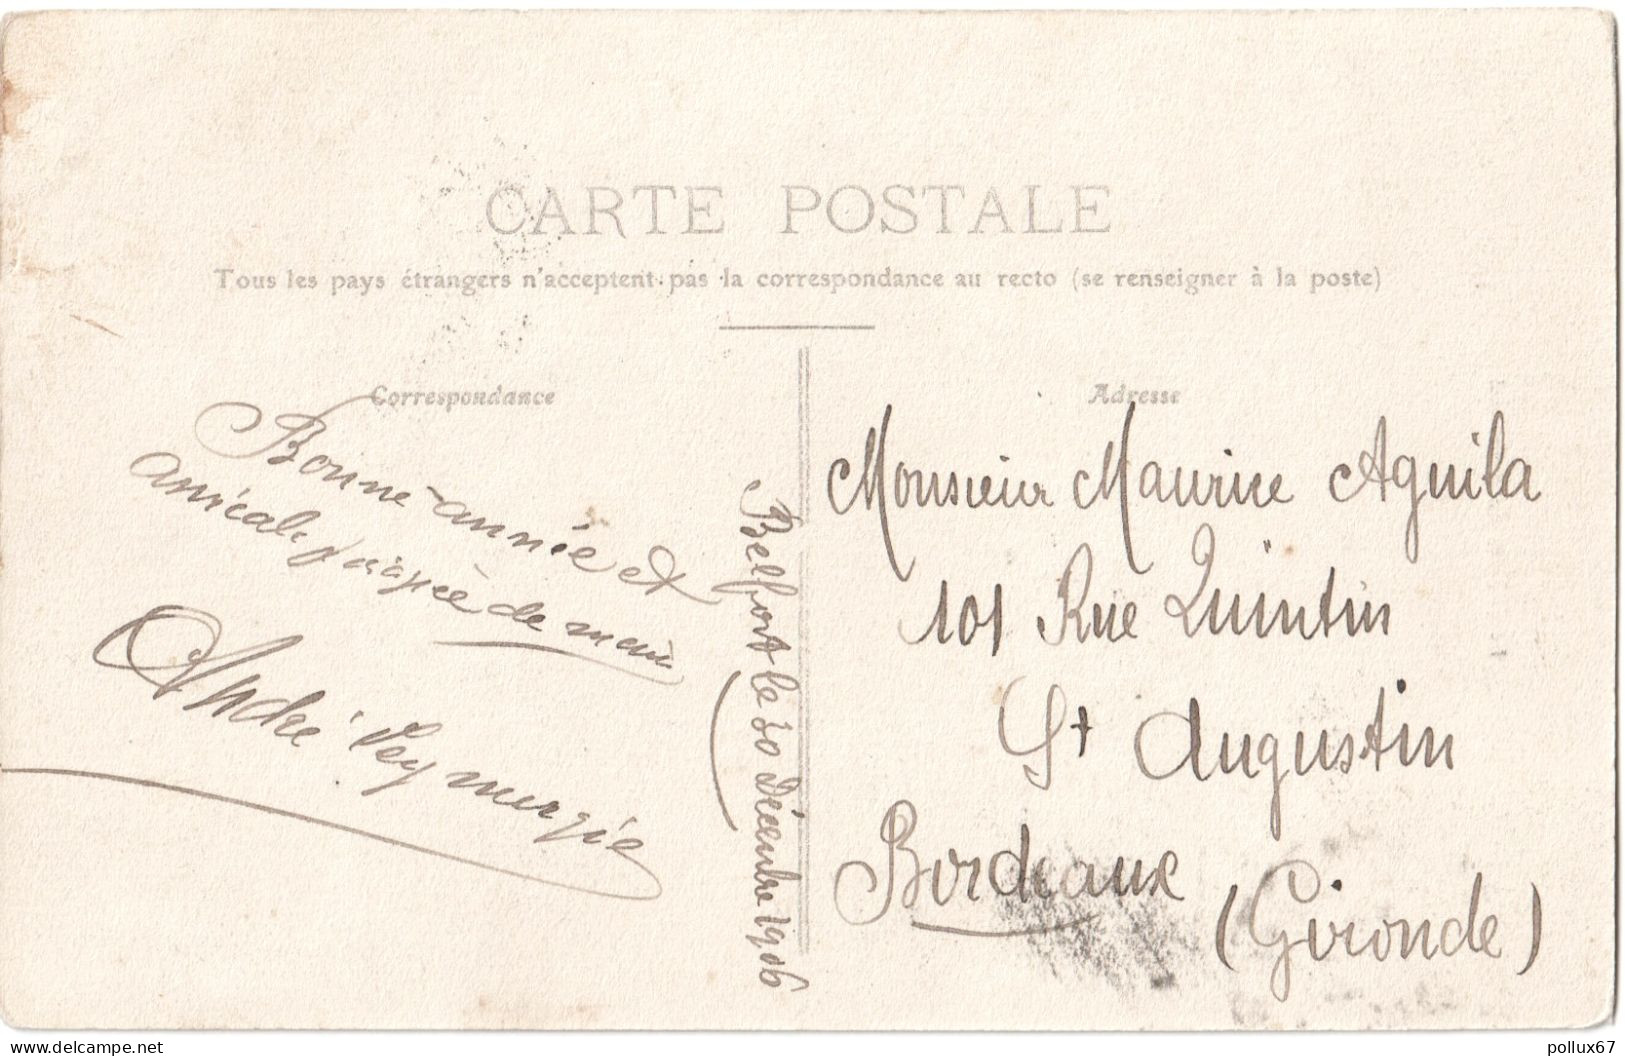 CARTE POSTALE
Tous les pays étrangers n'acceptent pas la correspondance au recto (se renseigner à la poste)
Correspondance
Bonne année et
amicale poignée de main
André Peymergie
Belfort le 30 Décembre 1906
Adresse
Monsieur Maurice Aguila
101 Rue Quintin
St Augustin
Bordeaux
(Gironde)
www.delcampe.net
pollux67